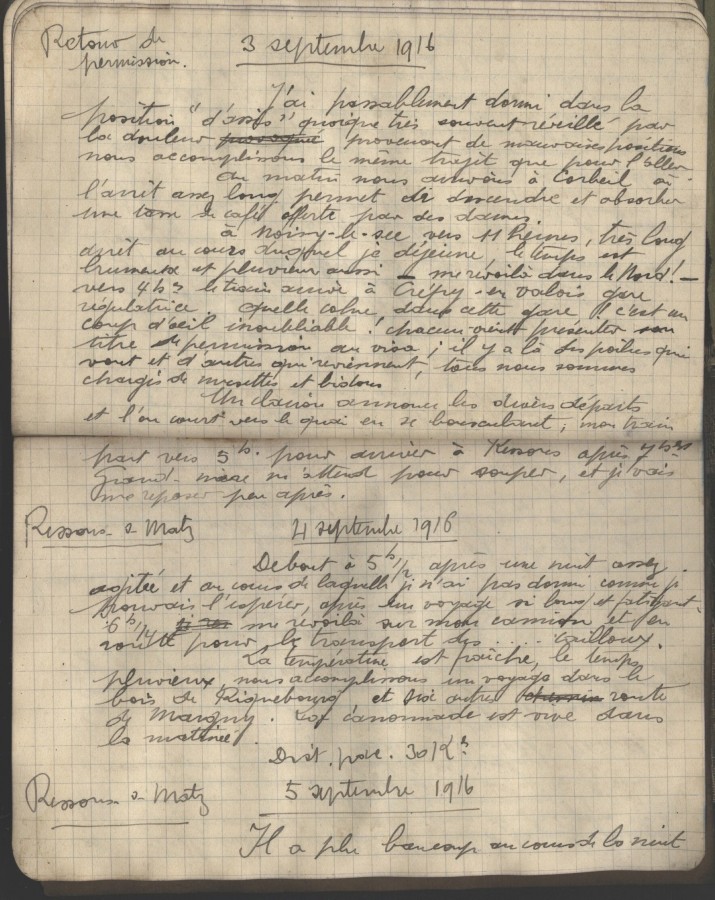 Retour de
permission.
3 septembre 1916
J'ai passablement dormi dans la
position "d'assis" quoique très souvent réveillé par
la douleur provoqué provenant de mauvaises positions
nous accomplissons le même trajet que pour l'aller.
Au matin nous arrivons à Corbeil où
l'arrêt assez long permet de descendre et absorber
une tasse de café offerte par des dames.
à Noisy-le-sec vers 11 heures, très long
arrêt au cours duquel je déjeune, le temps est
brumeux et pluvieux aussi — me revoilà dans le Nord! —
vers 4hs le train arrive à Crépy-en-valois gare
régulatrice quelle cohue dans cette gare! c'est un
coup d'oeil inoubliable! chacun vient présenter son
titre de permission au visa; il y a là des poilus qui
vont et d'autres qui reviennent, tous nous sommes
chargés de musettes et bidons
Un clairon annonce les divers départs
et l'on court vers le quai en se bousculant; mon train
part vers 5hs. pour arriver à Ressons après 7hs
Grand-mère m'attend pour souper, et je vais
me reposer peu après.
Ressons-s-Matz
4 septembre 1916
Debout à 5h1/2 après une nuit assez
agitée et au cours de laquelle je n'ai pas dormi comme je
pouvais l'espérer, après un voyage si long et fatigant.
à 6h1/4 me revoilà sur mon camion et en
route pour le transport des ..... cailloux.
La température est fraîche, le temps
pluvieux, nous accomplissons un voyage dans le
bois de Riquebourg et six autres route
de Margny. La canonnade est vive dans
la matinée.
Dist. parc. 30 Ks
Ressons-s-Matz
5 septembre 1916
Il a plu beaucoup au cours de la nuit